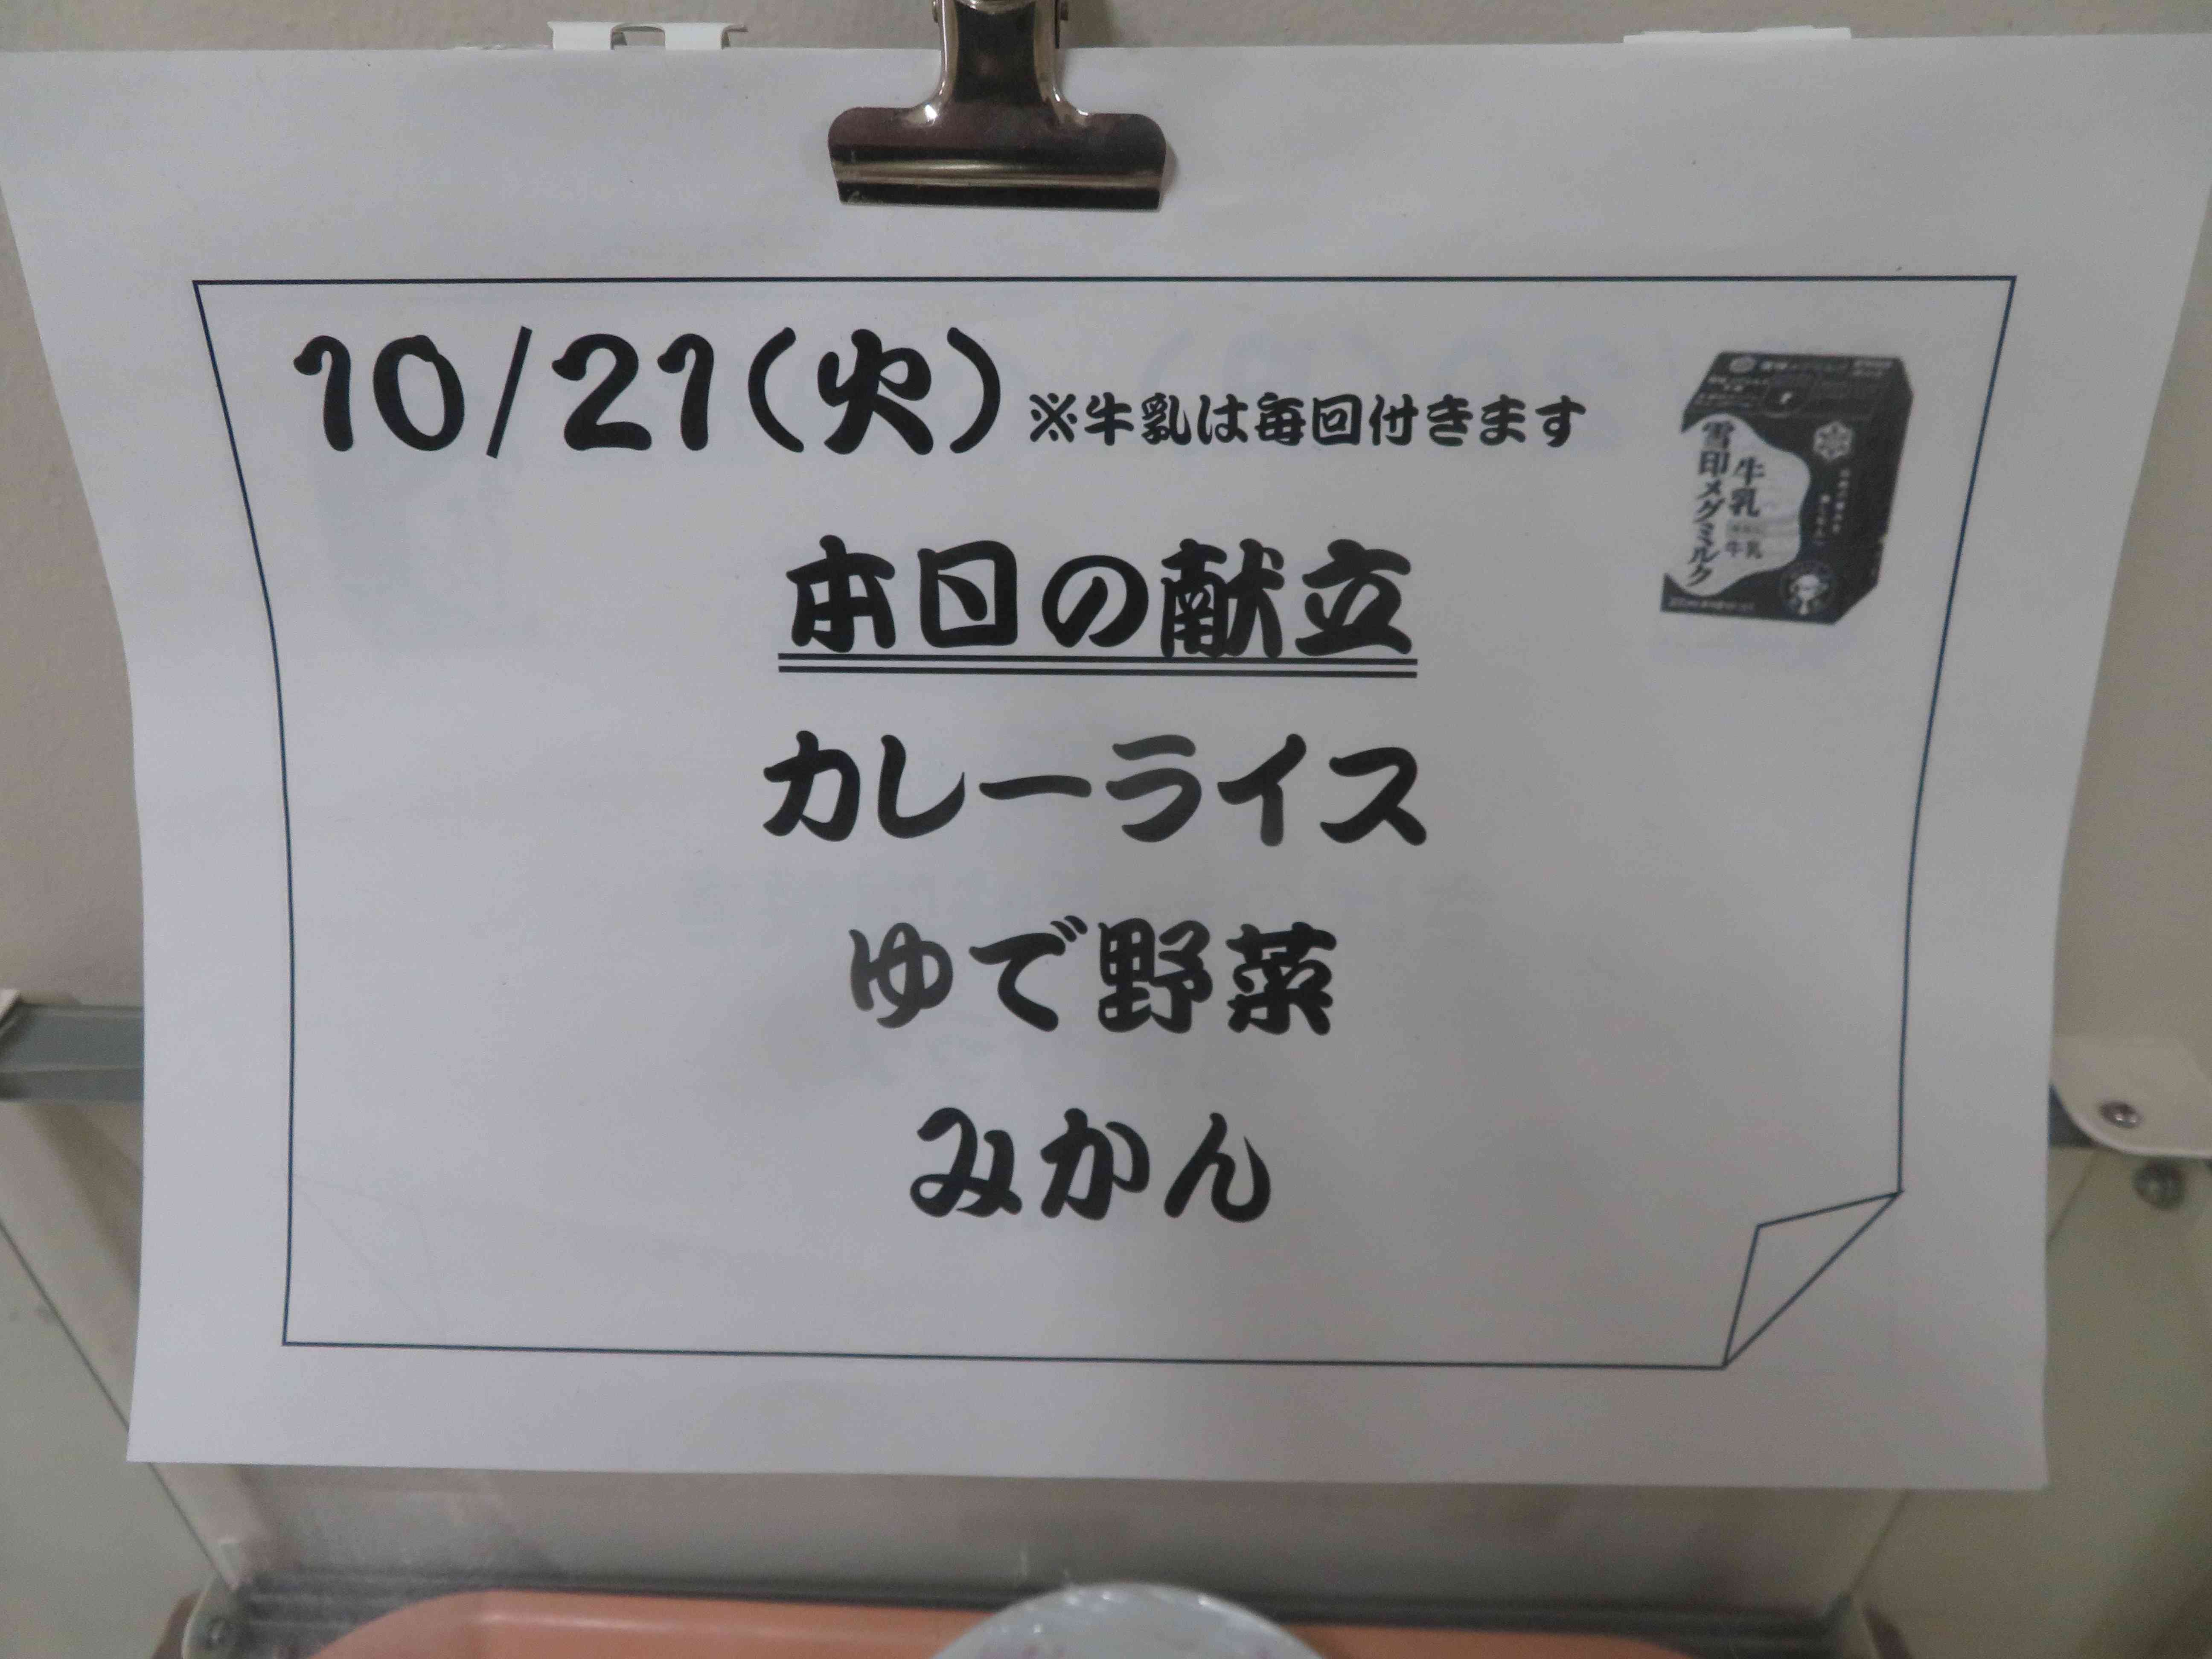 10/21(火) ※牛乳は毎回付きます
本日の献立
カレーライス
ゆで野菜
みかん
雪印メグミルク
牛乳
牛乳